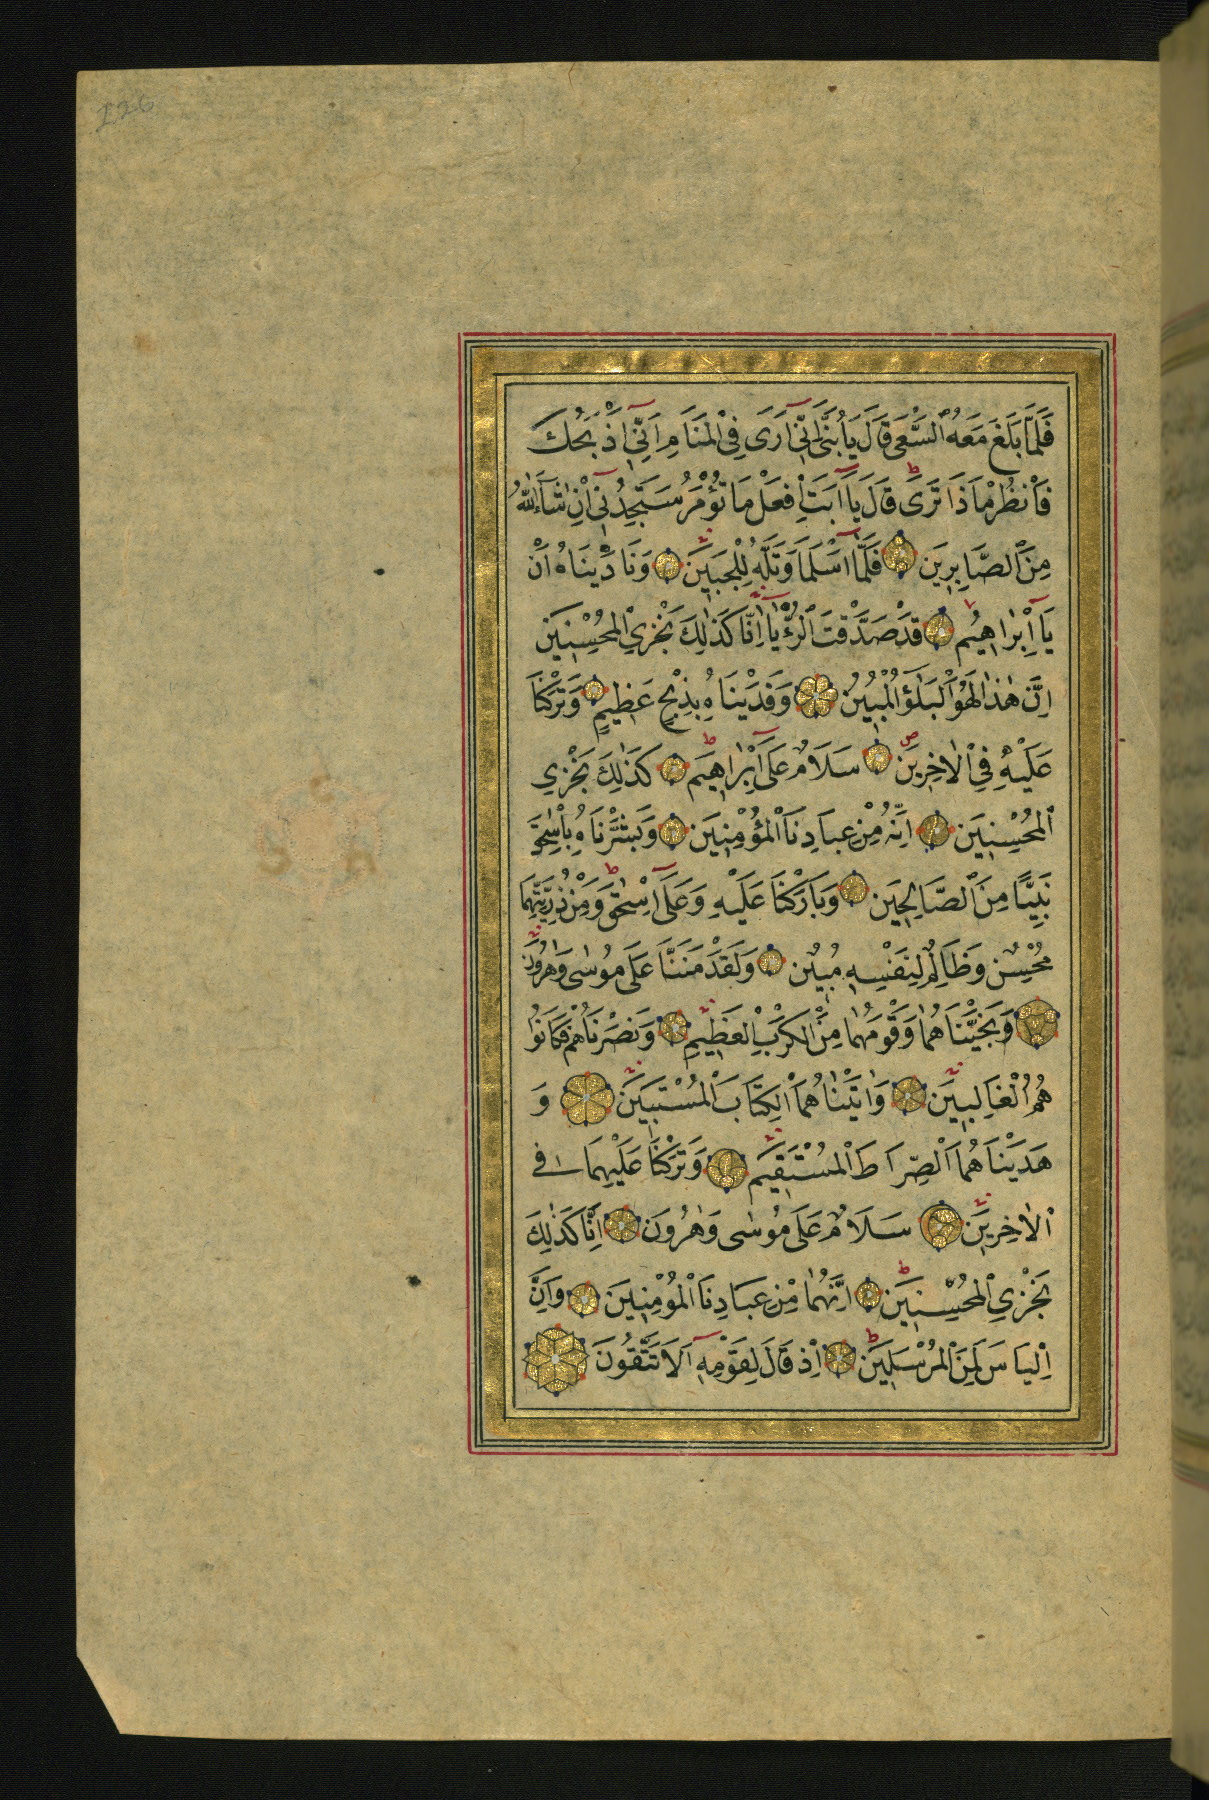 126
فَلَمَّا بَلَغَ مَعَهُ السَّعْيَ قَالَ يَا بُنَيَّ اِنِّٓي اَرٰى فِي الْمَنَامِ اَنِّٓي اَذْبَحُكَ
فَانْظُرْ مَاذَا تَرٰى قَالَ يَٓا اَبَتِ افْعَلْ مَا تُؤْمَرُ سَتَجِدُنِٓي اِنْ شَٓاءَ اللّٰهُ
مِنَ الصَّابِرِينَ فَلَمَّٓا اَسْلَمَا وَتَلَّهُ لِلْجَبِينِ وَنَادَيْنَاهُ اَنْ
يَٓا اِبْرٰاهِيمُ قَدْ صَدَّقْتَ الرُّءْيَٓا اِنَّا كَذٰلِكَ نَجْزِي الْمُحْسِنِينَ
اِنَّ هٰذَا لَهُوَ الْبَلٰٓؤُا الْمُبِينُ وَفَدَيْنَاهُ بِذِبْحٍ عَظِيمٍ وَتَرَكْنَا
عَلَيْهِ فِي الْاٰخِرِينَ سَلَامٌ عَلٰٓى اِبْرٰاهِيمَ كَذٰلِكَ نَجْزِي
الْمُحْسِنِينَ اِنَّهُ مِنْ عِبَادِنَا الْمُؤْمِنِينَ وَبَشَّرْنَاهُ بِاِسْحٰقَ
نَبِيًّا مِنَ الصَّالِحِينَ وَبَارَكْنَا عَلَيْهِ وَعَلٰٓى اِسْحٰقَ وَمِنْ ذُرِّيَّتِهِمَا
مُحْسِنٌ وَظَالِمٌ لِنَفْسِهِ مُبِينٌ وَلَقَدْ مَنَنَّا عَلٰى مُوسٰى وَهٰرُونَ
وَنَجَّيْنَاهُمَا وَقَوْمَهُمَا مِنَ الْكَرْبِ الْعَظِيمِ وَنَصَرْنَاهُمْ فَكَانُوا
هُمُ الْغَالِبِينَ وَاٰتَيْنَاهُمَا الْكِتَابَ الْمُسْتَبِينَ وَ
هَدَيْنَاهُمَا الصِّرَاطَ الْمُسْتَقِيمَ وَتَرَكْنَا عَلَيْهِمَا فِي
الْاٰخِرِينَ سَلَامٌ عَلٰى مُوسٰى وَهٰرُونَ اِنَّا كَذٰلِكَ
نَجْزِي الْمُحْسِنِينَ اِنَّهُمَا مِنْ عِبَادِنَا الْمُؤْمِنِينَ وَاِنَّ
اِلْيَاسَ لَمِنَ الْمُرْسَلِينَ اِذْ قَالَ لِقَوْمِهِٓ اَلَا تَتَّقُونَ